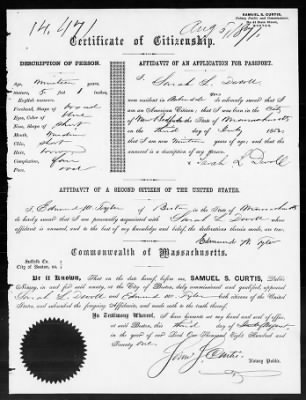 14,471
Aug 5/1871
SAMUEL S. CURTIS,
Notary Public and Commissioner,
BOSTON.
Certificate of Citizenship.
DESCRIPTION OF PERSON.
Nineteen years.
5 feet 1 inches
English measure.
Forehead, Shape of broad
Eyes, Color of blue
Nose, Shape of short
Mouth, medium
Chin, short
Hair, brown
Complexion, fair
Face, oval
AFFIDAVIT OF AN APPLICATION FOR PASSPORT.
I, Sarah L. Devoll
now resident in do solemnly swear that I
am an American; that I was born in the City
of New Bedford in the State of Massachusetts
on the third day of July 1852
that I am now Nineteen years of age; and that the
annexed is a description of my person:
Sarah L Devoll
AFFIDAVIT OF A SECOND CITIZEN OF THE UNITED STATES.
I, Edmund W. Tyler of Boston in the State of Massachusetts
do hereby swear that I am personally acquainted with Sarah L. Devoll whose
affidavit is annexed, and to the best of my knowledge and belief, the declarations therein made, are true.
Edmund W. Tyler
Commonwealth of Massachusetts.
Suffolk Co.
City of Boston, ss.
Be it Known, That on the date hereof, before me, SAMUEL S. CURTIS, Public
Notary, in and for said county, at the City of Boston, duly commissioned and qualified, appeared
Sarah L. Devoll and Edmund W. Tyler both citizens of the United
States, and subscribed the foregoing Affidavits, and made oath to the truth thereof.
In Testimony Whereof, I have hereunto set my hand and seal of office,
at said Boston, this third day of August,
in the year of our Lord One Thousand Eight Hundred and
Seventy one.
Curtis
Notary Public.